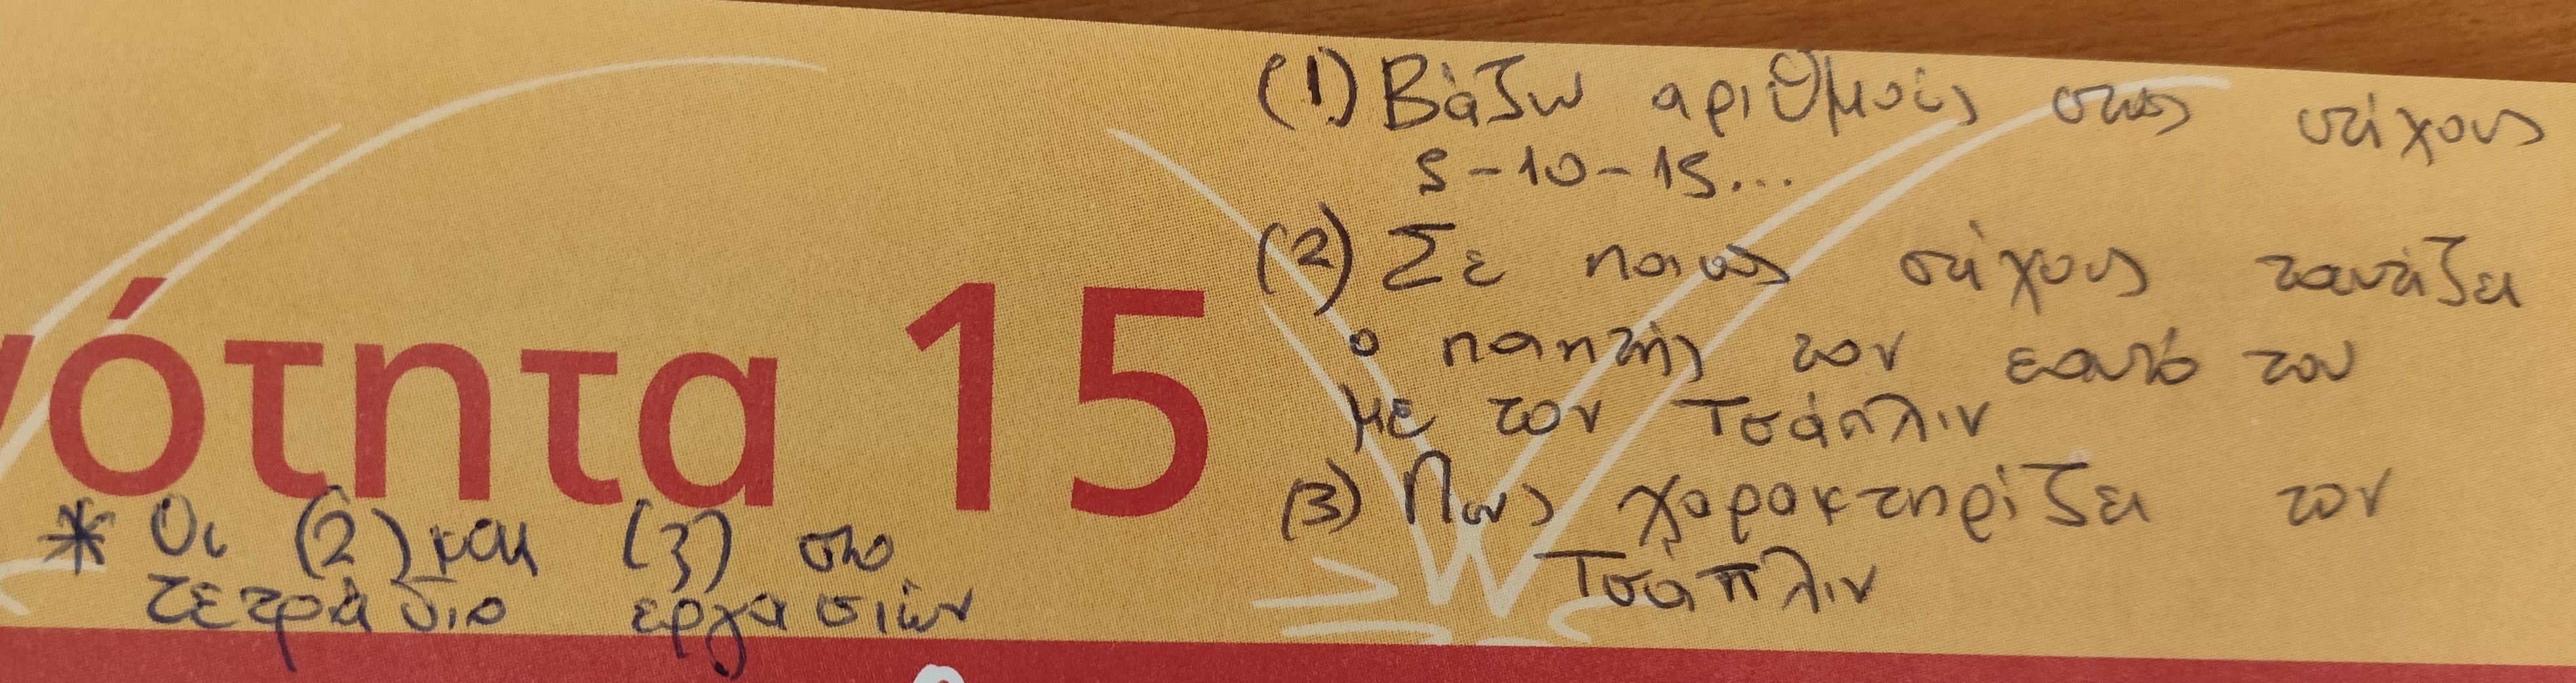 (1) Βάζω αριθμούς στους στίχους
5-10-15...
(2) Σε ποιους στίχους ταυτίζει
ο ποιητής τον εαυτό του
με τον Τσάπλιν
(3) Πως χαρακτηρίζει τον
Τσάπλιν
νότητα 15
* Οι (2) και (3) στο
τετράδιο εργασιών